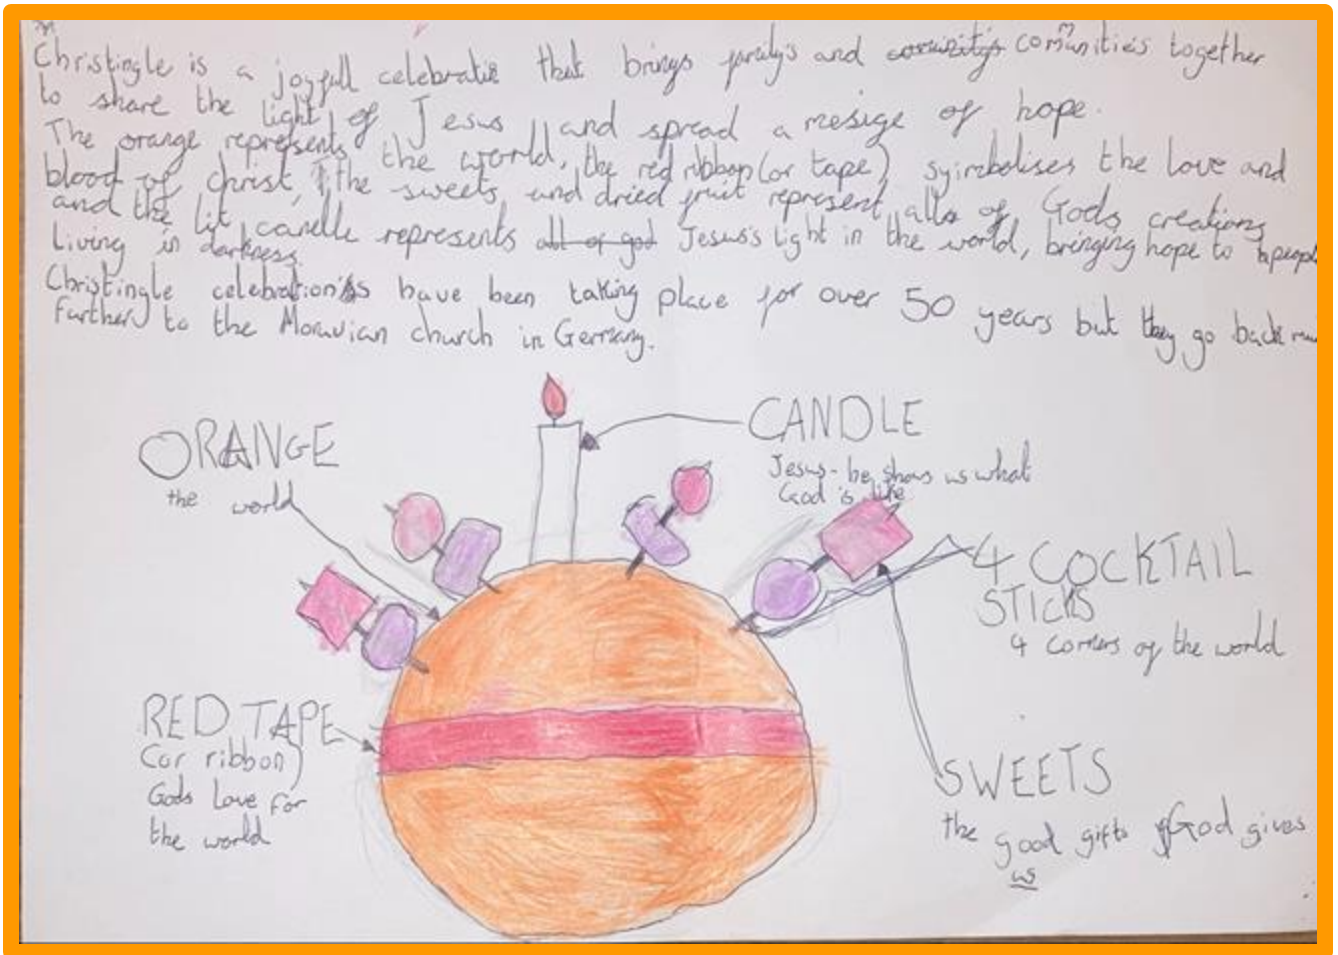 Christingle is a joyfull celebratie that brings family's and comunity's comunities together
m
to share the light of Jesus and spread a mesige of hope.
The orange represents the world, the red ribbon (or tape) symbolises the love and
blood of christ, the sweets and dried fruit represent all of Gods creations
and the lit candle represents all of god Jesus's light in the world, bringing hope to people
Living in darkness.
Christingle celebrations have been taking place for over 50 years but they go back
further to the Moravian church in Germany.
ORANGE
the world
CANDLE
Jesus - he shows us what
God is like
4 COCKTAIL
STICKS
4 corners of the world
RED TAPE
(or ribbon)
Gods Love for
the world
SWEETS
the good gifts God gives
us